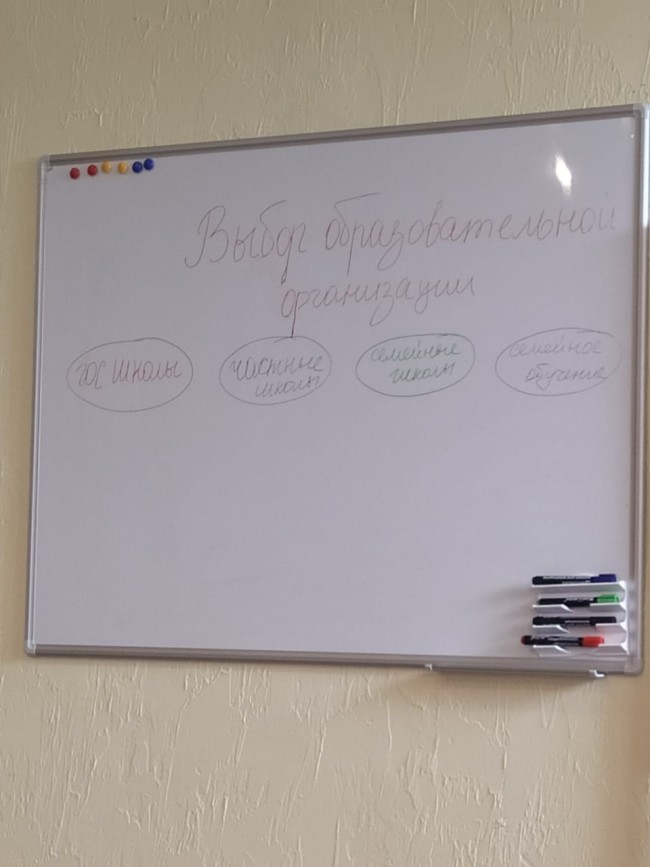 Выбор образовательной
организации
гос школы
частные
школы
семейные
школы
семейное
обучение